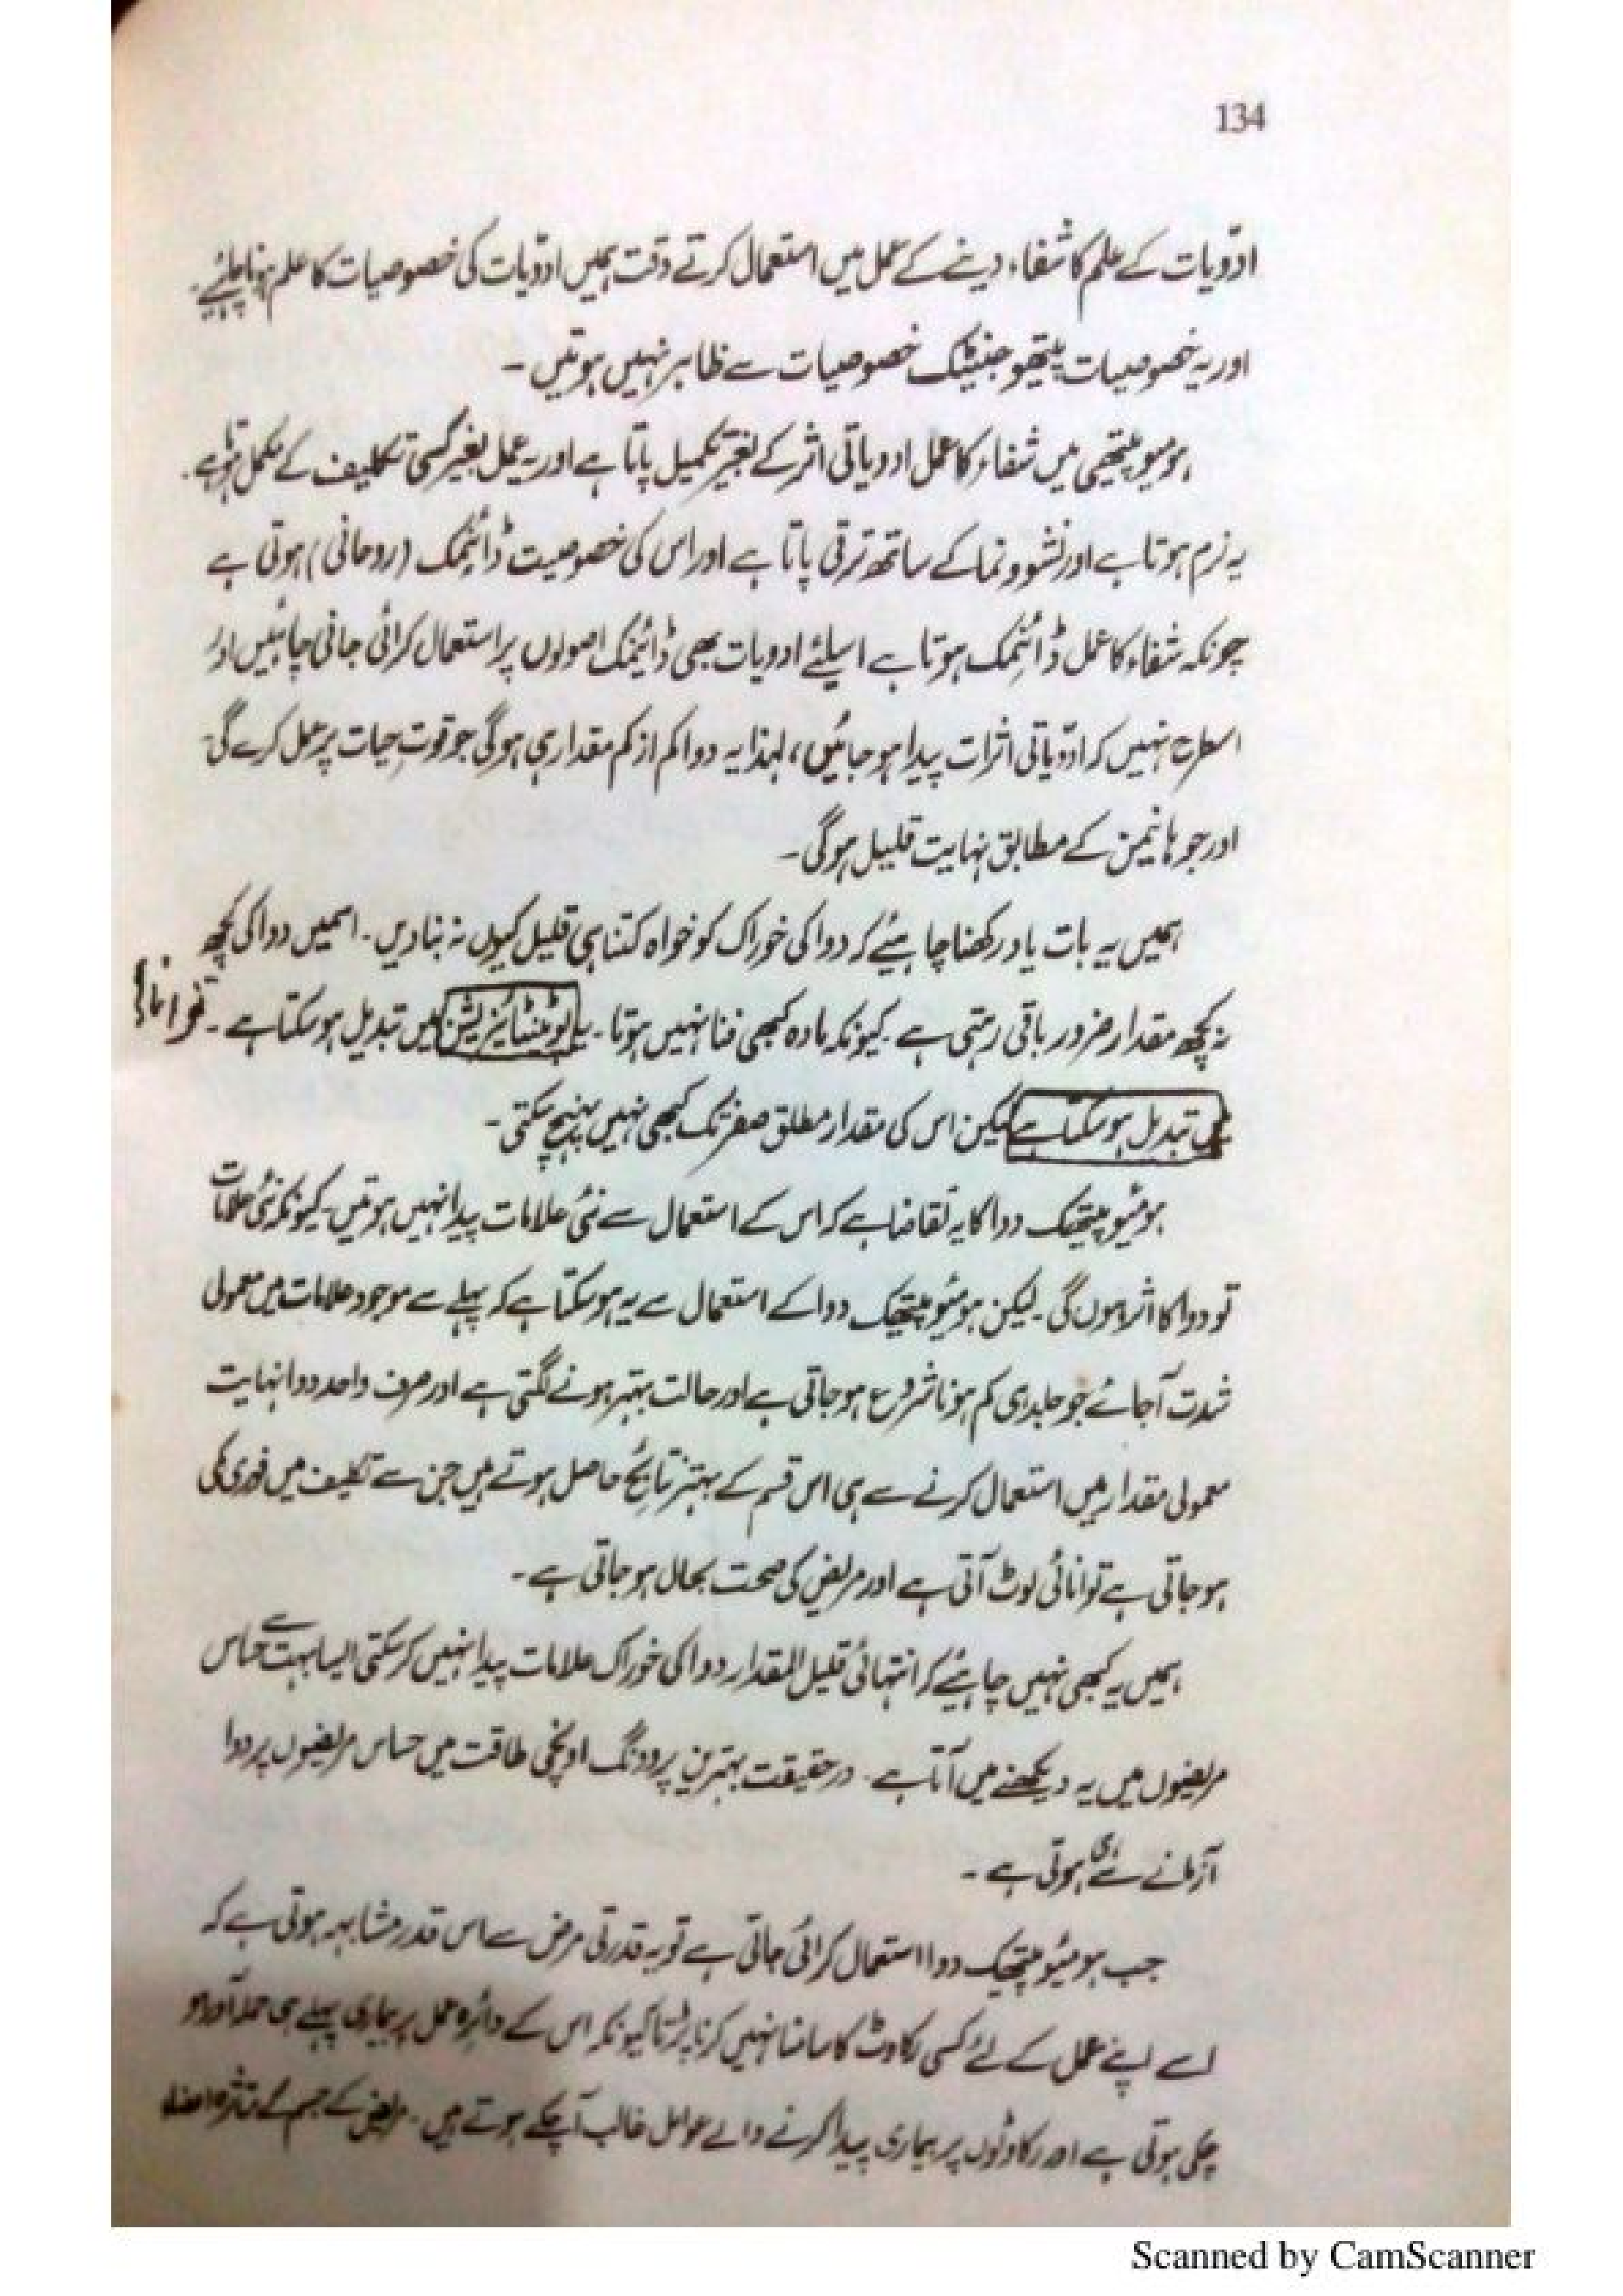 134
ادویات کے علم کا شفاء دینے کے عمل میں استعمال کرتے وقت ہمیں ادویات کی خصوصیات کا علم ہونا چاہیئے۔
اور یہ خصوصیات پیتھوجنیٹک خصوصیات سے ظاہر نہیں ہوتیں ۔
ہومیوپیتھی میں شفاء کا عمل ادویاتی اثر کے بغیر تکمیل پاتا ہے اور یہ عمل بغیر کسی تکلیف کے مکمل ہوتا ہے۔
یہ نرم ہوتا ہے اور نشوونما کے ساتھ ترقی پاتا ہے اور اس کی خصوصیت ڈائنمک (روحانی) ہوتی ہے
چونکہ شفاء کا عمل ڈائنمک ہوتا ہے اسلئے ادویات بھی ڈائنمک اصولوں پر استعمال کرائی جانی چاہئیں اور
اسطرح نہیں کہ ادویاتی اثرات پیدا ہو جائیں، لہذا یہ دوا کم از کم مقدار ہی ہوگی جو قوتِ حیات پر عمل کرے گی
اور جو ہانیمن کے مطابق نہایت قلیل ہوگی۔
ہمیں یہ بات یاد رکھنا چاہیئے کہ دوا کی خوراک کو خواہ کتنا ہی قلیل کیوں نہ بنا دیں۔ اسمیں دوا کی کچھ
نہ کچھ مقدار ضرور باقی رہتی ہے ۔ کیونکہ مادہ کبھی فنا نہیں ہوتا ۔ یا پوٹینٹائزیشن میں تبدیل ہو سکتا ہے ۔ توانائی
میں تبدیل ہو سکتا ہے لیکن اس کی مقدار مطلق صفر تک کبھی نہیں پہنچ سکتی۔
ہومیوپیتھک دوا کا یہ تقاضا ہے کہ اس کے استعمال سے نئی علامات پیدا نہیں ہوتیں۔ کیونکہ نئی علامات
تو دوا کا اثر ہوں گی ۔ لیکن ہومیوپیتھک دوا کے استعمال سے یہ ہو سکتا ہے کہ پہلے سے موجود علامات میں معمولی
شدت آ جائے جو جلد ہی کم ہونا شروع ہو جاتی ہے اور حالت بہتر ہونے لگتی ہے اور صرف واحد دوا نہایت
معمولی مقدار میں استعمال کرنے سے ہی اس قسم کے بہتر نتائج حاصل ہوتے ہیں جن سے تکلیف میں فوری کمی
ہو جاتی ہے توانائی لوٹ آتی ہے اور مریض کی صحت بحال ہو جاتی ہے ۔
ہمیں یہ کبھی نہیں چاہیئے کہ انتہائی قلیل المقدار دوا کی خوراک علامات پیدا نہیں کر سکتی ایسا بہت سے حساس
مریضوں میں یہ دیکھنے میں آتا ہے ۔ درحقیقت بہترین پرودنگ اونچی طاقت میں حساس مریضوں پر دوا
آزمانے سے ہی ہوتی ہے ۔
جب ہومیوپیتھک دوا استعمال کرائی جاتی ہے تو یہ قدرتی مرض سے اس قدر مشابہہ ہوتی ہے کہ
اسے اپنے عمل کے لئے کسی رکاوٹ کا سامنا نہیں کرنا پڑتا کیونکہ اس کے دائرہ عمل پر بیماری پہلے ہی حملہ آور ہو
چکی ہوتی ہے اور رکاوٹوں پر بیماری پیدا کرنے والے عوامل غالب آ چکے ہوتے ہیں ۔ مریض کے جسم کے متاثرہ اعضاء
Scanned by CamScanner